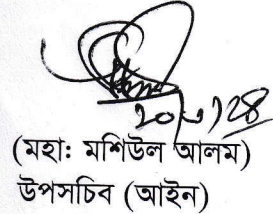 (মহাঃ মশিউল আলম)
উপসচিব (আইন)